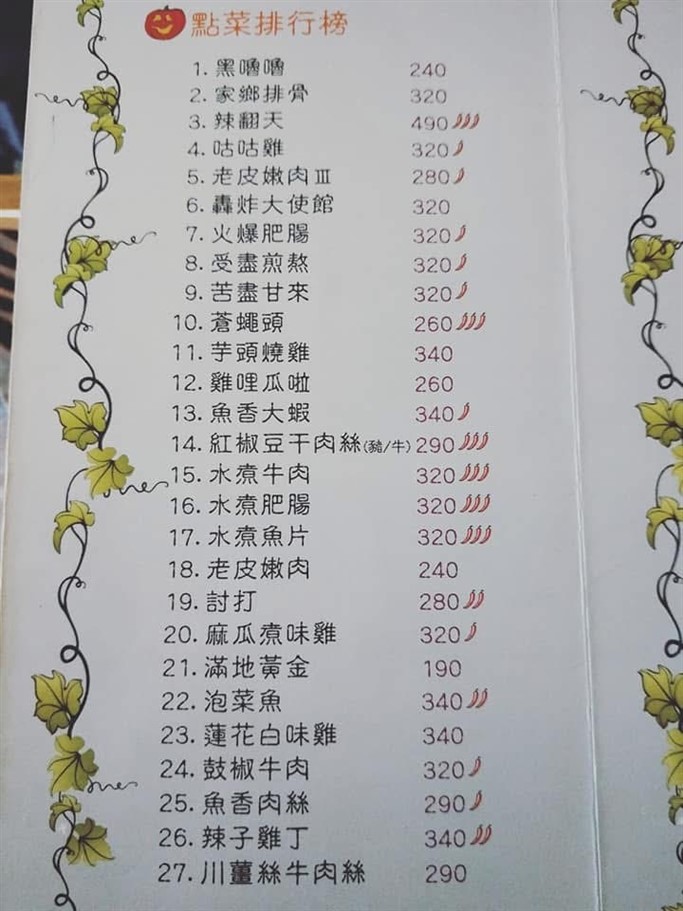 點菜排行榜
1. 黑嚕嚕 240
2. 家鄉排骨 320
3. 辣翻天 490
4. 咕咕雞 320
5. 老皮嫩肉Ⅲ 280
6. 轟炸大使館 320
7. 火爆肥腸 320
8. 受盡煎熬 320
9. 苦盡甘來 320
10. 蒼蠅頭 260
11. 芋頭燒雞 340
12. 雞哩瓜啦 260
13. 魚香大蝦 340
14. 紅椒豆干肉絲(豬/牛) 290
15. 水煮牛肉 320
16. 水煮肥腸 320
17. 水煮魚片 320
18. 老皮嫩肉 240
19. 討打 280
20. 麻瓜煮味雞 320
21. 滿地黃金 190
22. 泡菜魚 340
23. 蓮花白味雞 340
24. 鼓椒牛肉 320
25. 魚香肉絲 290
26. 辣子雞丁 340
27. 川薑絲牛肉絲 290